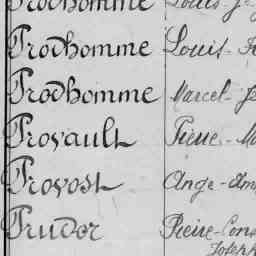 Prodhomme Louis-J
Prodhomme Louis-
Prodhomme Marcel-Je
Provault Pierre-Ma
Provost Ange-Am
Prudor Pierre-Cons
Joseph